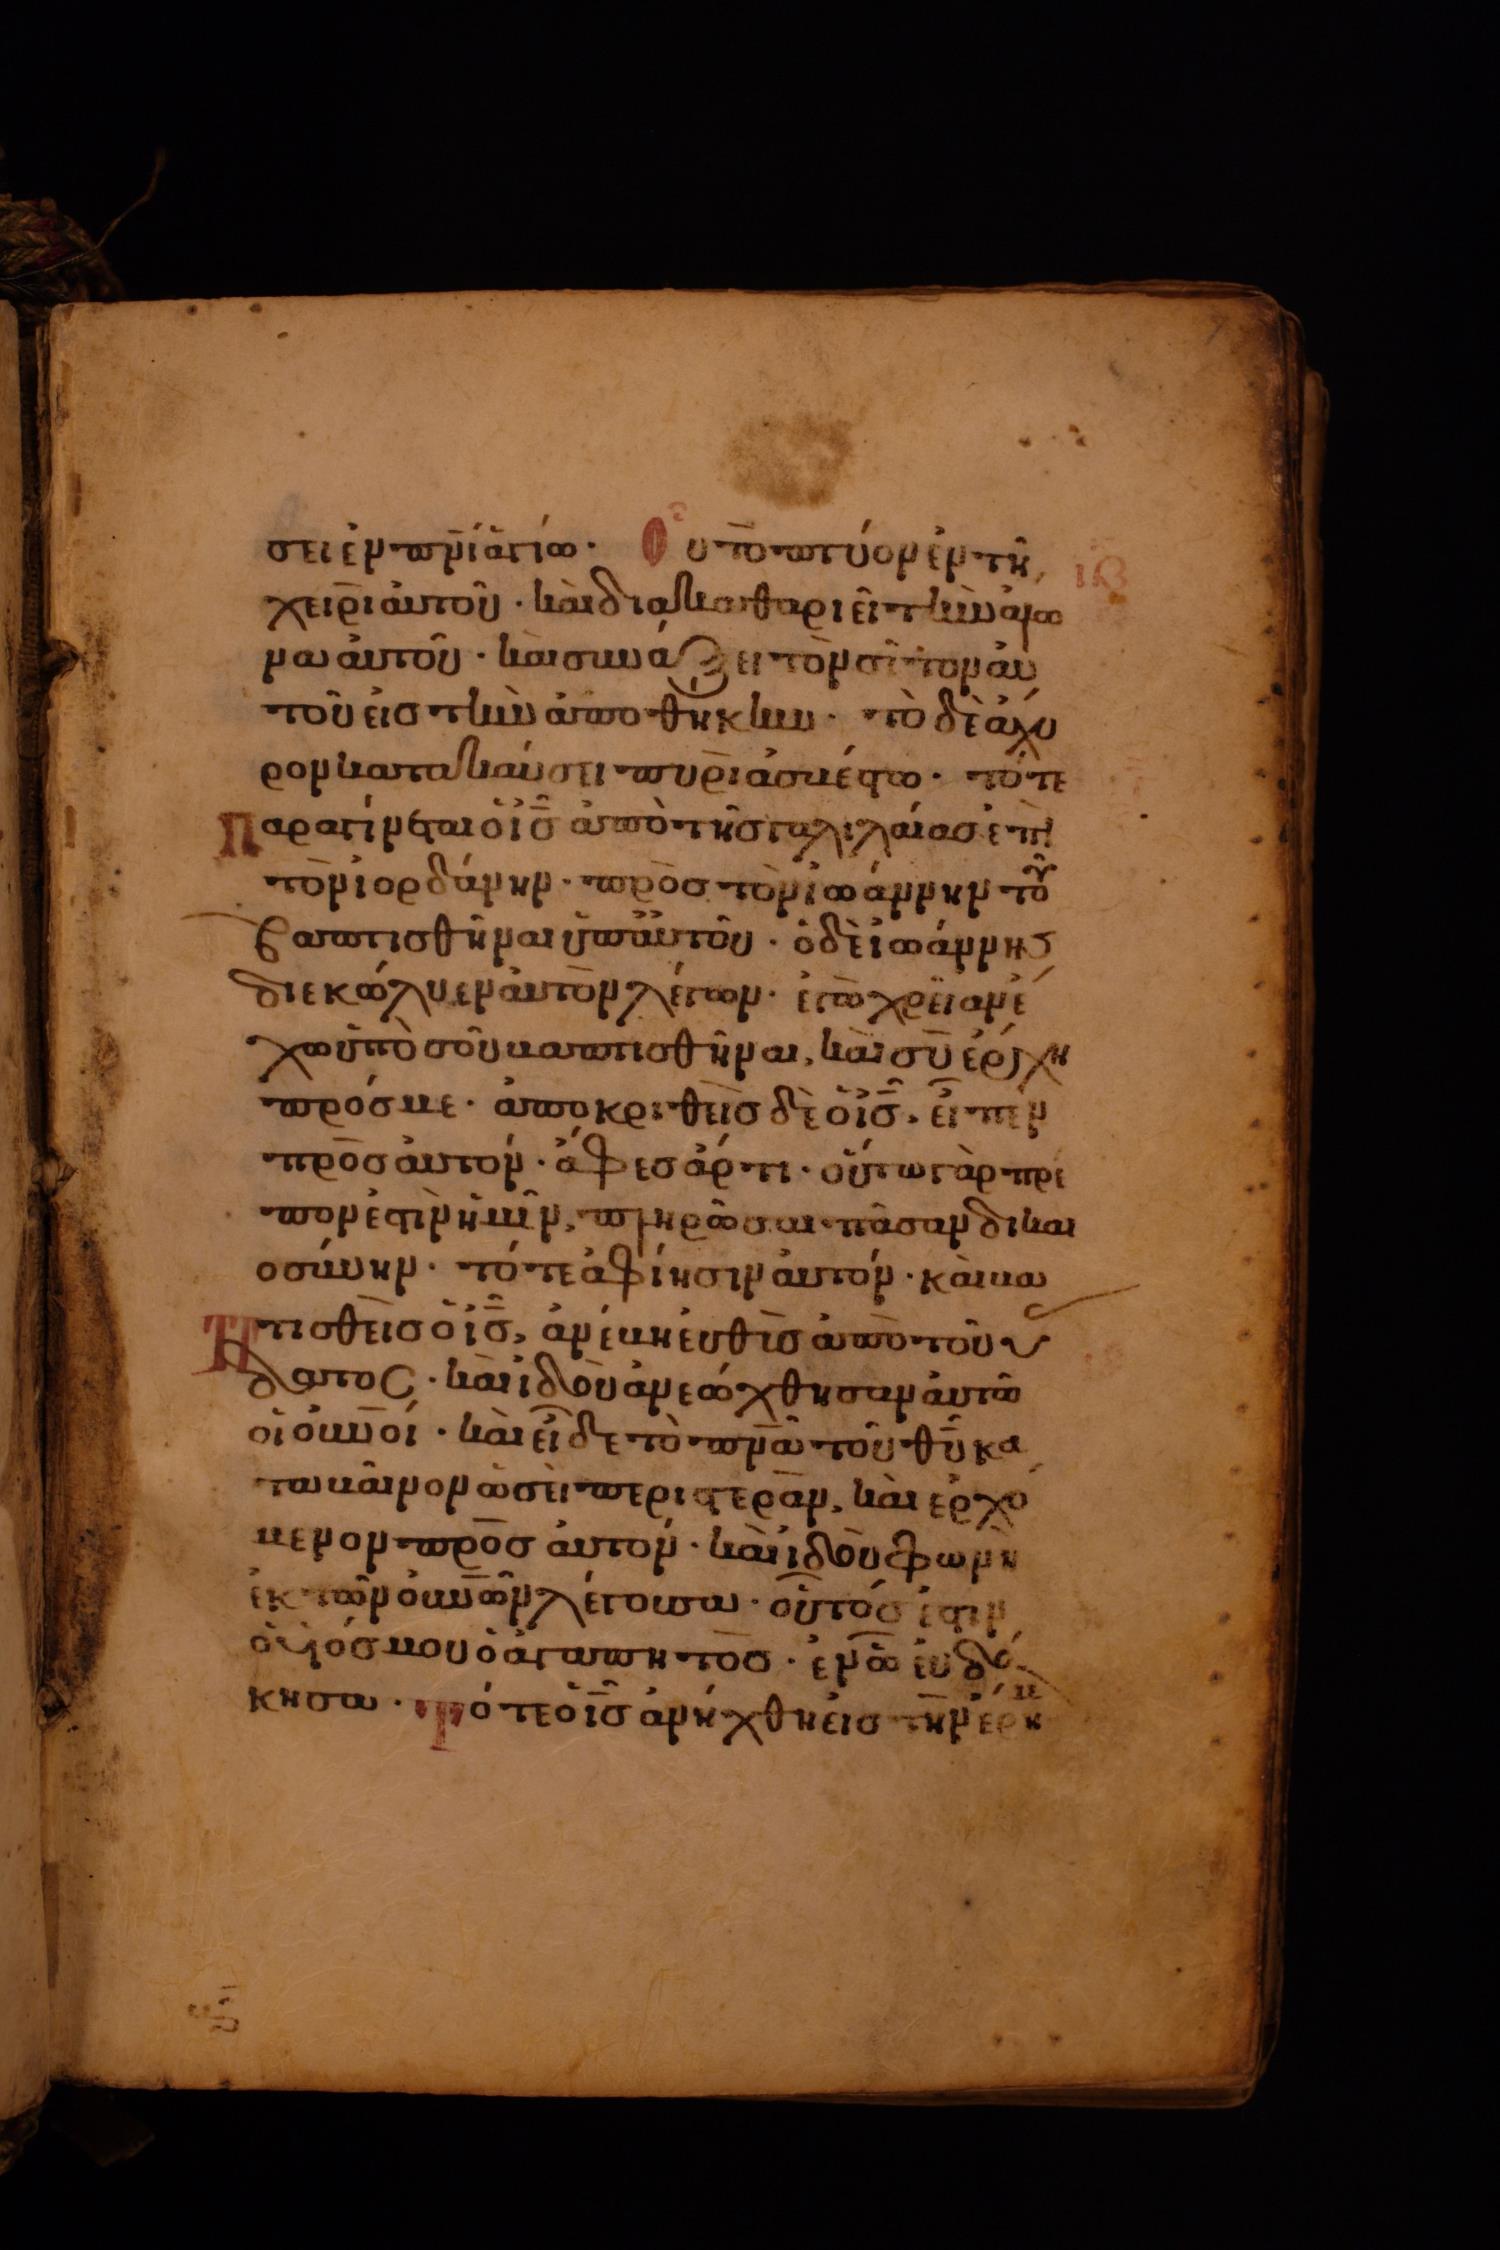 σει ἐν πνῒ ἁγίω· Οὗ τὸ πτύον ἐν τῆ
χειρὶ ἀυτοῦ· καὶ διακαθαριεῖ τὴν ἅλω
να ἀυτοῦ· καὶ συνάξει τὸν σῖτον ἀυ
τοῦ ἐις τὴν ἀποθηκην· τὸ δὲ ἄχυ
ρον κατακαύσει πυρὶ ἀσβέστω· τότε
Παραγίνεται ὁ ἰς̄ ἀπὸ τῆς γαλιλαίας ἐπὶ
τὸν ἰορδάνην· πρὸς τὸν ἰωάννην τοῦ
βαπτισθῆναι ὑπ' ἀυτοῦ· ὁ δὲ ἰωάννης
διεκώλυεν ἀυτὸν λέγων· ἐγὼ χρείαν ἔ
χω ὑπὸ σοῦ βαπτισθῆναι, καὶ σὺ ἔρχη
πρός με· ἀποκριθεὶς δὲ ὁ ἰς̄, εἶπεν
πρὸς ἀυτόν· ἄφες ἄρτι· οὕτω γὰρ πρέ
πον ἐστὶν ἡμῖν, πληρῶσαι πᾶσαν δικαι
οσύνην· τότε ἀφίησιν ἀυτόν· κὰι βα
Πτισθεὶς ὁ ἰς̄, ἀνέβη ἐυθὺς ἀπὸ τοῦ ὕ
δατος· καὶ ἰδοὺ ἀνεώχθησαν ἀυτῶ
οἱ ὀυν̄οί· καὶ εἶδε τὸ πν̄α τοῦ θῡ κα
ταβαῖνον ὡσεὶ περιστερὰν, καὶ ἐρχό
μενον πρὸς ἀυτόν· καὶ ἰδοὺ φωνὴ
ἐκ τῶν ὀυν̄ῶν λέγουσα· οὗτός ἐστιν
ὁ υἱός μου ὁ ἀγαπητὸς· ἐν ᾧ ἐυδό
κησα· Τότε ὁ ἰς̄ ἀνήχθη ἐις τὴν ἔρημ
ιβ